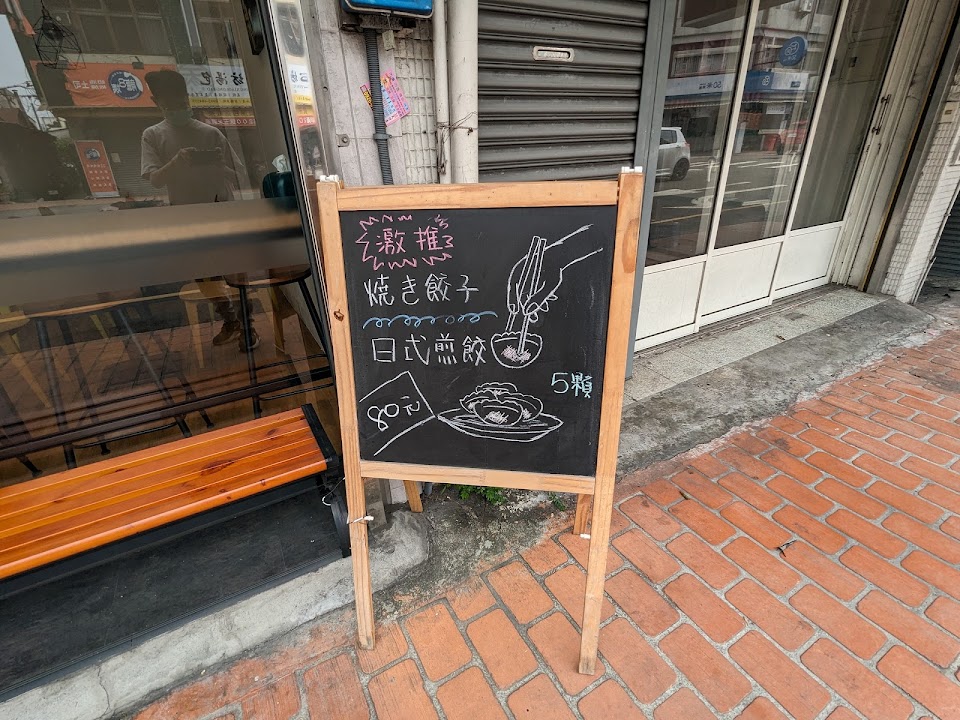 激推
焼き餃子
日式煎餃
5顆
80元